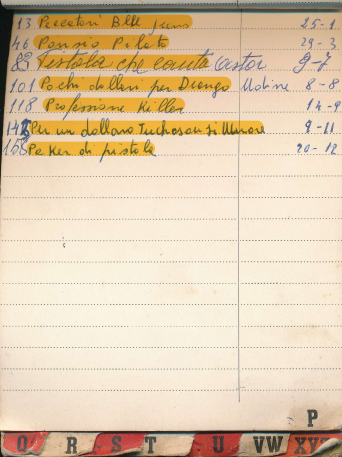 13 Peccatori Blu jeans 25-1
46 Ponsio Pilato 29-3
83 Pistola che canta astor 9-7
101 Pochi dollari per Django Udine 8-8
118 Professione Killer 14-9
Per un dollaro Tucheson si Muore 9-11
158 Poker di pistole 20-12
P
Q R S T U VW XY